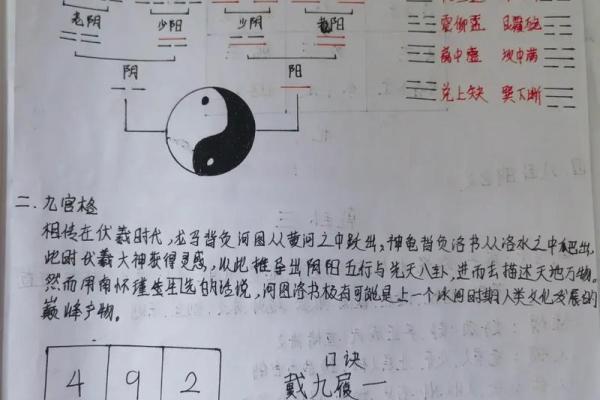 老阴 少阳 少阴 老阳
震仰盂 艮覆碗
离中虚 坎中满
阴 阳
兑上缺 巽下断
二、九宫格
相传在伏羲时代,龙马背负河图从黄河之中跃出,神龟背负洛书从洛水之中爬出,
此时伏羲大神获得灵感,从此推导出阴阳五行与先天八卦,进而去描述天地万物。
然而用南怀瑾先生的话说,河图洛书极有可能是上一个冰河时期人类文化发展的
巅峰产物。
口诀
4 9 2
戴九履一